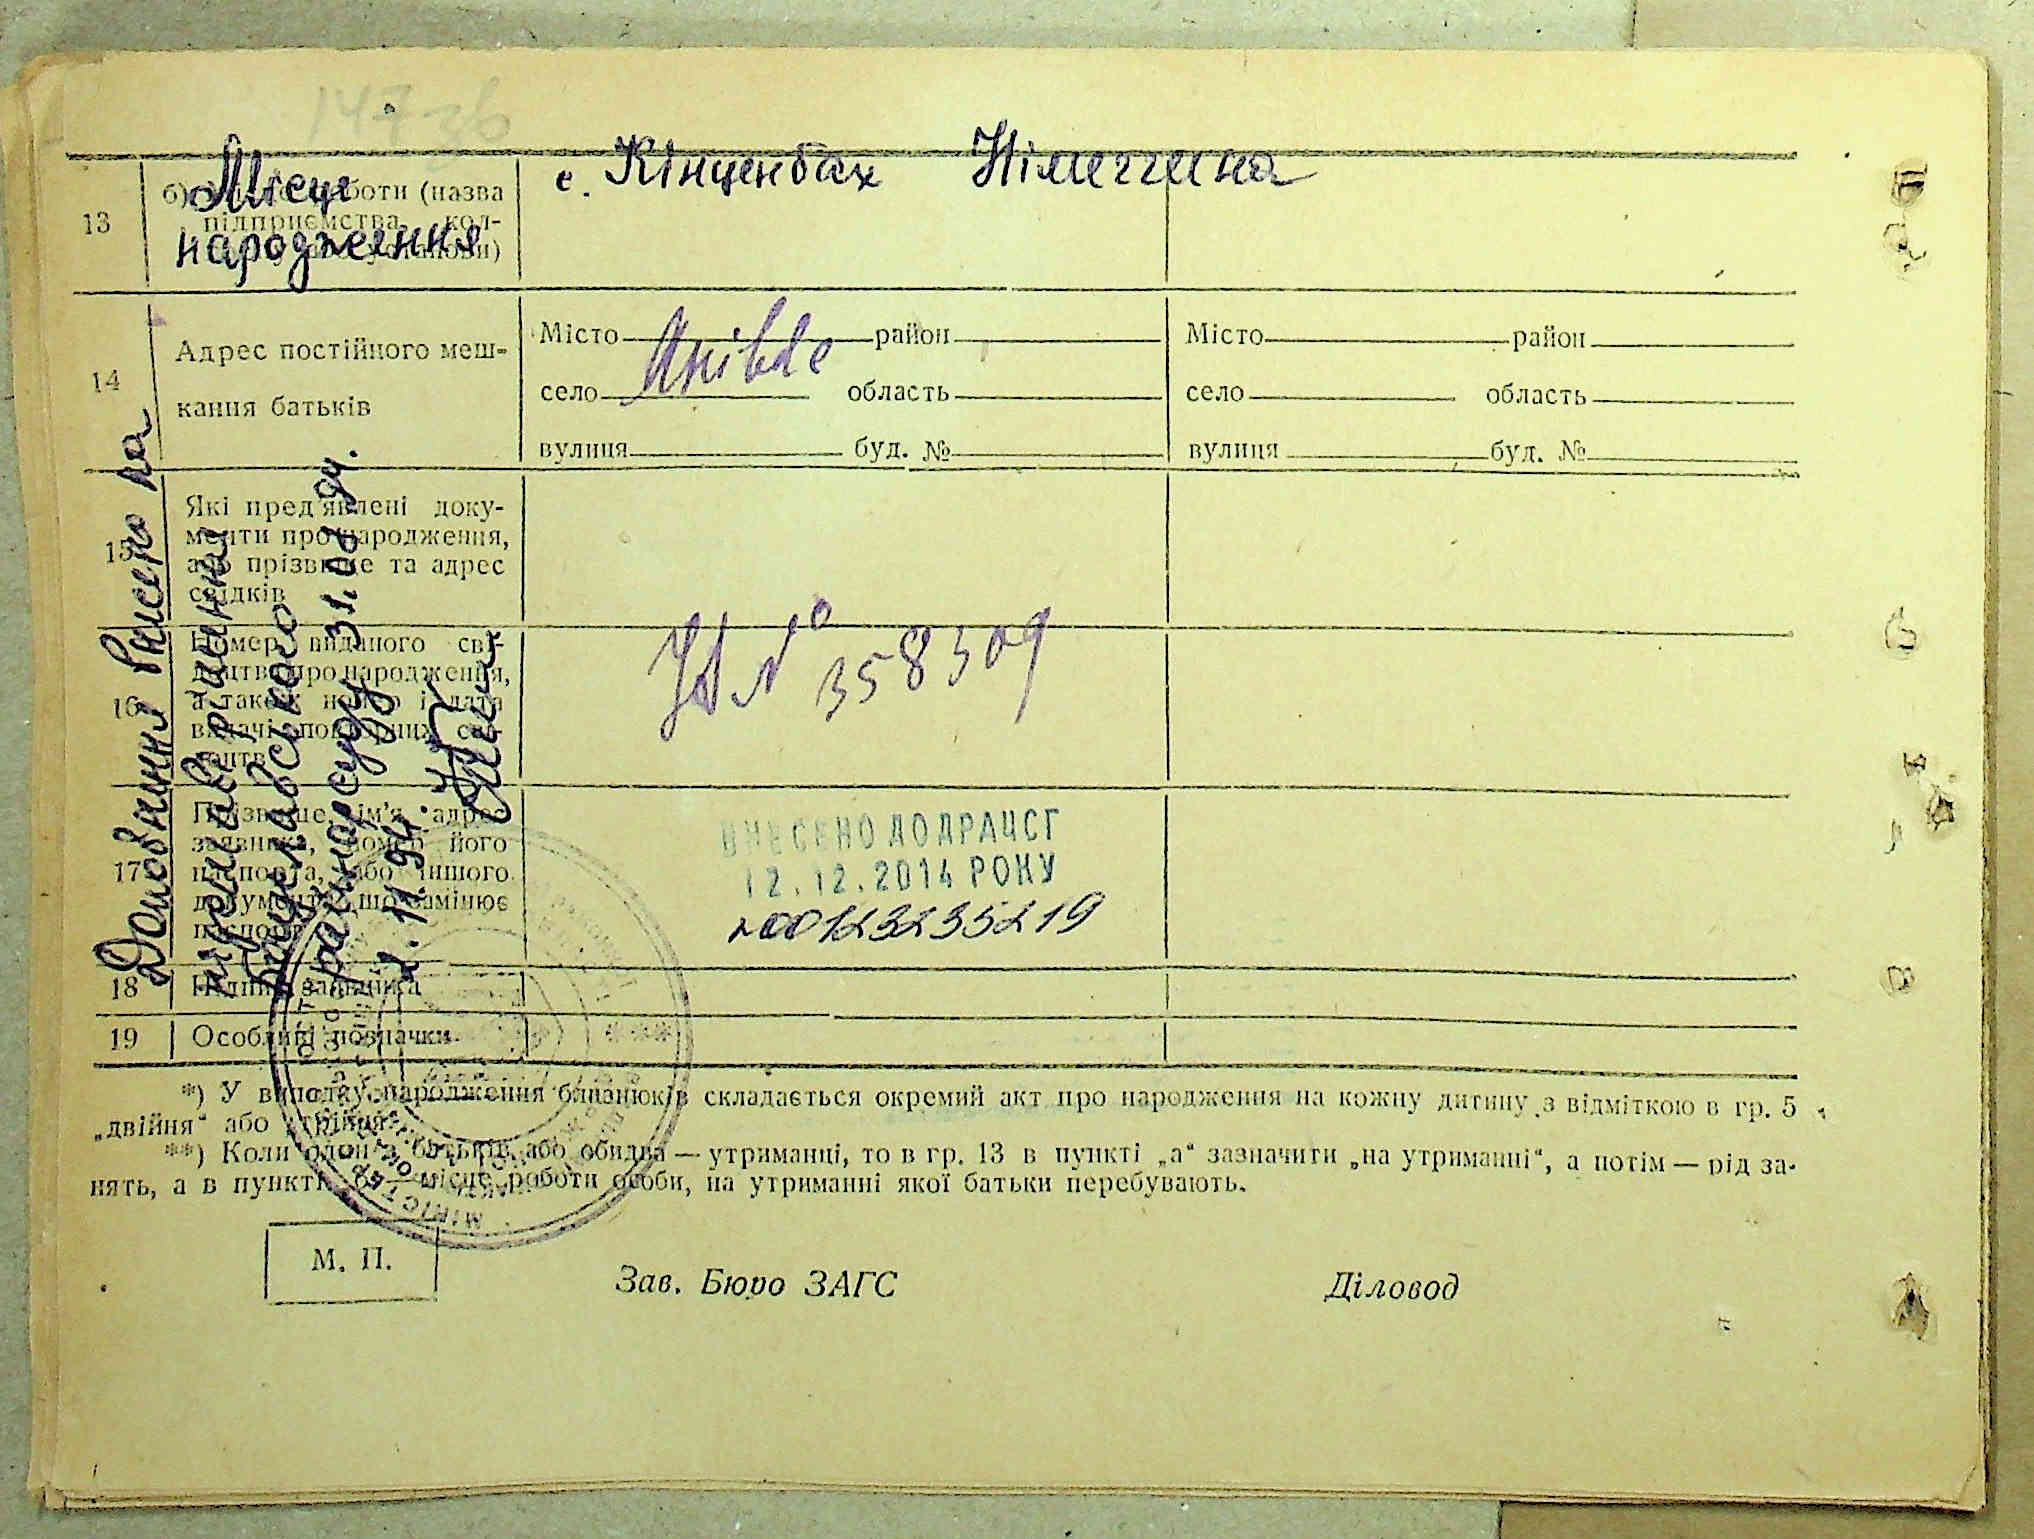 147 зв
Місце
народження
с. Кінценбах Німеччина
13
б) боти (назва
підприємства, кол-
14
Адрес постійного меш-
кання батьків
Місто район
село область
вулиця буд. №
Місто район
село область
вулиця буд. №
15
Які пред'явлені доку-
менти про народження,
або прізвище та адрес
свідків
16
Номер виданого сві-
доцтва про народження,
а також номер і дата
видачі повторних сві-
доцтв
№ 358309
17
Прізвище, ім'я, адрес
заявника, номер його
паспорта, або іншого
документа, що замінює
паспорт
ВНЕСЕНО ДО ДРАЦСГ
12.12.2014 РОКУ
00123235219
18
Підпис заявника
19
Особливі позначки
Доповнення внесено на
підставі рішення
райнарсуду 31.08.94.
1.11.94
*) У випадку народження близнюків складається окремий акт про народження на кожну дитину з відміткою в гр. 5
„двійня“ або „трійня“.
**) Коли один з батьків, або обидва — утриманці, то в гр. 13 в пункті „а“ зазначити „на утриманні“, а потім — рід за-
нять, а в пункті „б“ — місце роботи особи, на утриманні якої батьки перебувають.
М. П.
Зав. Бюро ЗАГС
Діловод